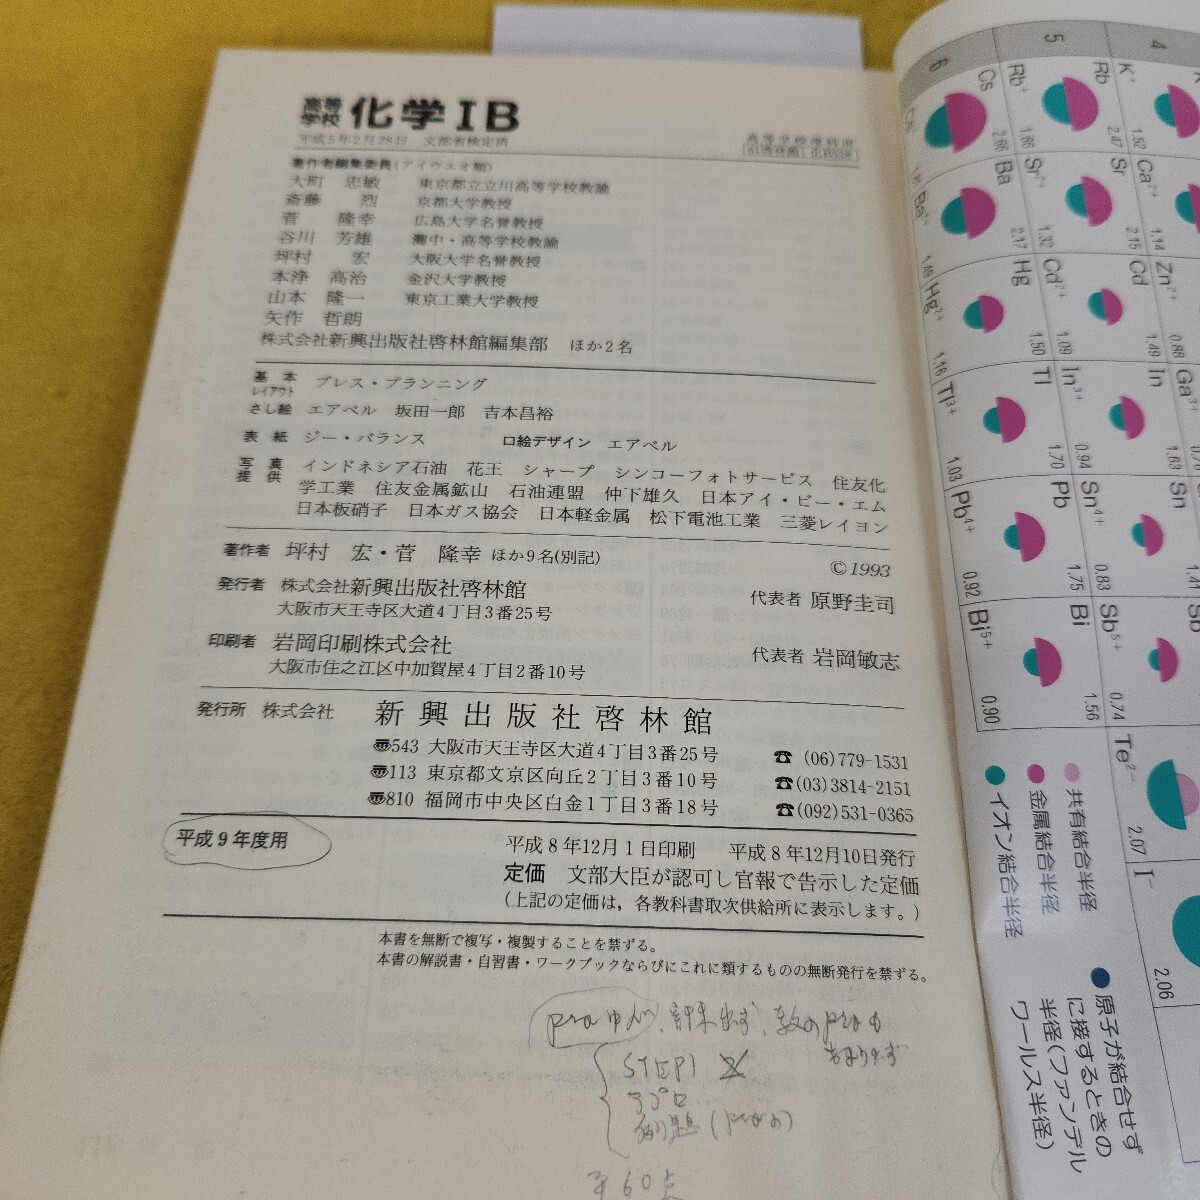 高等学校 化学ⅠB
平成5年2月28日 文部省検定済
高等学校理科用
61啓林館
著作者編集委員(アイウエオ順)
大町 忠敏 東京都立立川高等学校教諭
斎藤 烈 京都大学教授
菅 隆幸 広島大学名誉教授
谷川 芳雄 灘中・高等学校教諭
坪村 宏 大阪大学名誉教授
本浄 高治 金沢大学教授
山本 隆一 東京工業大学教授
矢作 哲朗
株式会社新興出版社啓林館編集部 ほか2名
基本レイアウト プレス・プランニング
さし絵 エアベル 坂田一郎 吉本昌裕
表紙 ジー・バランス 口絵デザイン エアベル
写真提供 インドネシア石油 花王 シャープ シンコーフォトサービス 住友化
学工業 住友金属鉱山 石油連盟 仲下雄久 日本アイ・ビー・エム
日本板硝子 日本ガス協会 日本軽金属 松下電池工業 三菱レイヨン
著作者 坪村 宏・菅 隆幸 ほか9名(別記) ©1993
発行者 株式会社新興出版社啓林館 代表者 原野圭司
大阪市天王寺区大道4丁目3番25号
印刷者 岩岡印刷株式会社 代表者 岩岡敏志
大阪市住之江区中加賀屋4丁目2番10号
発行所 株式会社 新興出版社啓林館
〠543 大阪市天王寺区大道4丁目3番25号 ☎(06)779-1531
〠113 東京都文京区向丘2丁目3番10号 ☎(03)3814-2151
〠810 福岡市中央区白金1丁目3番18号 ☎(092)531-0365
平成9年度用 平成8年12月1日印刷 平成8年12月10日発行
定価 文部大臣が認可し官報で告示した定価
(上記の定価は，各教科書取次供給所に表示します。)
本書を無断で複写・複製することを禁ずる。
本書の解説書・自習書・ワークブックならびにこれに類するものの無断発行を禁ずる。
STEP1
例題
60点
6 5 4
Cs 2.66 Rb⁺ 1.66 Rb 2.47 K⁺ 1.52
Ba²⁺ 1.49 Ba 2.17 Sr²⁺ 1.32 Sr 2.15 Ca²⁺ 1.14
Hg²⁺ 1.16 Hg 1.50 Cd²⁺ 1.09 Cd 1.49 Zn²⁺ 0.88
Tl³⁺ 1.03 Tl 1.70 In³⁺ 0.94 In 1.63 Ga³⁺
Pb⁴⁺ 0.92 Pb 1.75 Sn⁴⁺ 0.83 Sn 1.41
Bi⁵⁺ 0.90 Bi 1.56 Sb⁵⁺ 0.74 Sb
Te²⁻ 2.07
I⁻ 2.06
共有結合半径
金属結合半径
イオン結合半径
原子が結合せず
に接するときの
半径(ファンデル
ワールス半径)